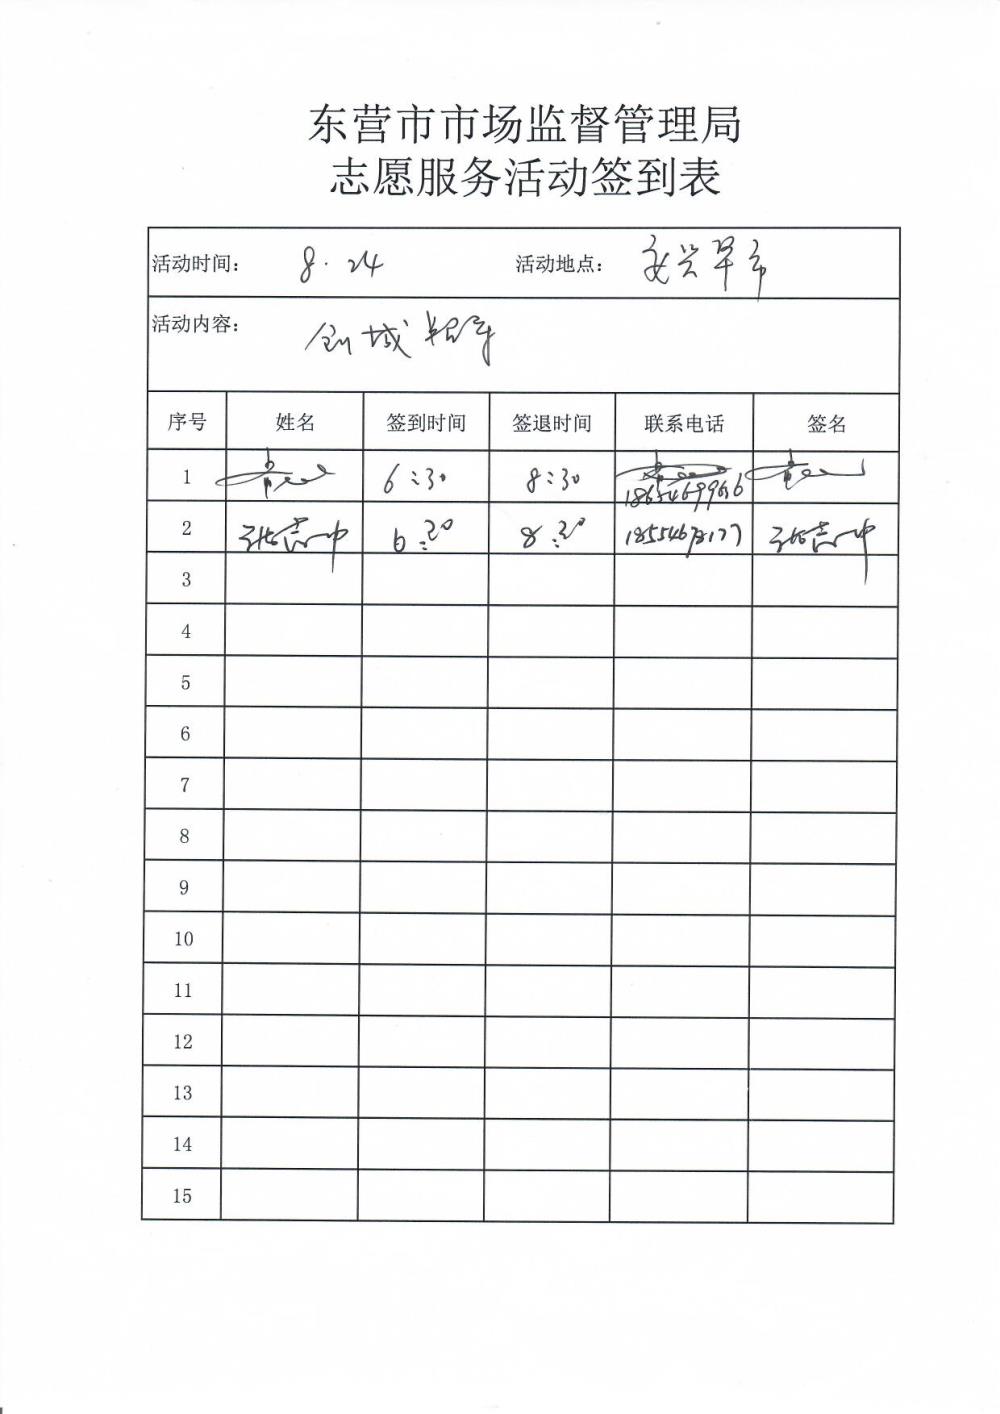 东营市市场监督管理局
志愿服务活动签到表
活动时间: 8.24 活动地点: 安兴早市
活动内容: 创城指导
序号 姓名 签到时间 签退时间 联系电话 签名
1 6:30 8:30
2 张志中 6:30 8:30 张志中
3
4
5
6
7
8
9
10
11
12
13
14
15